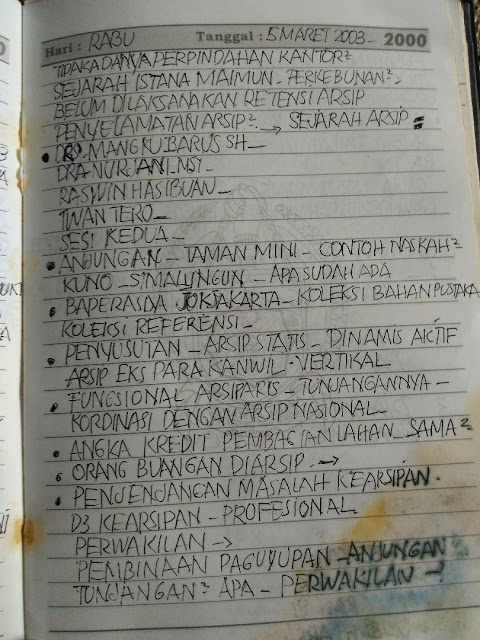 Hari : RABU Tanggal : 5 MARET 2003 - 2000
TIDAK ADANYA PERPINDAHAN KANTOR²
SEJARAH ISTANA MAIMUN - PERKEBUNAN² -
BELUM DILAKSANAKAN RETENSI ARSIP
PENYELAMATAN ARSIP² → SEJARAH ARSIP =
• DRS. MANGKU BARUS SH -
DRA NURJANI. MSI -
RASWIN HASIBUAN -
IWAN TERO -
SESI KEDUA -
• ANJUNGAN - TAMAN MINI - CONTOH NASKAH²
KUNO - SIMALUNGUN - APA SUDAH ADA
• BAPERASDA JOKJAKARTA - KOLEKSI BAHAN PUSTAKA
KOLEKSI REFERENSI -
• PENYUSUTAN - ARSIP STATIS - DINAMIS AKTIF
ARSIP EKS PARA KANWIL - VERTIKAL
• FUNGSIONAL ARSIPARIS - TUNJANGANNYA -
KORDINASI DENGAN ARSIP NASIONAL -
• ANGKA KREDIT PEMBAGIAN LAHAN SAMA²
• ORANG BUANGAN DIARSIP. →
• PENJENJANGAN MASALAH KEARSIPAN .
D3 KEARSIPAN - PROFESIONAL
PERWAKILAN →
PEMBINAAN PAGUYUPAN - ANJUNGAN
TUNJANGAN² APA - PERWAKILAN →